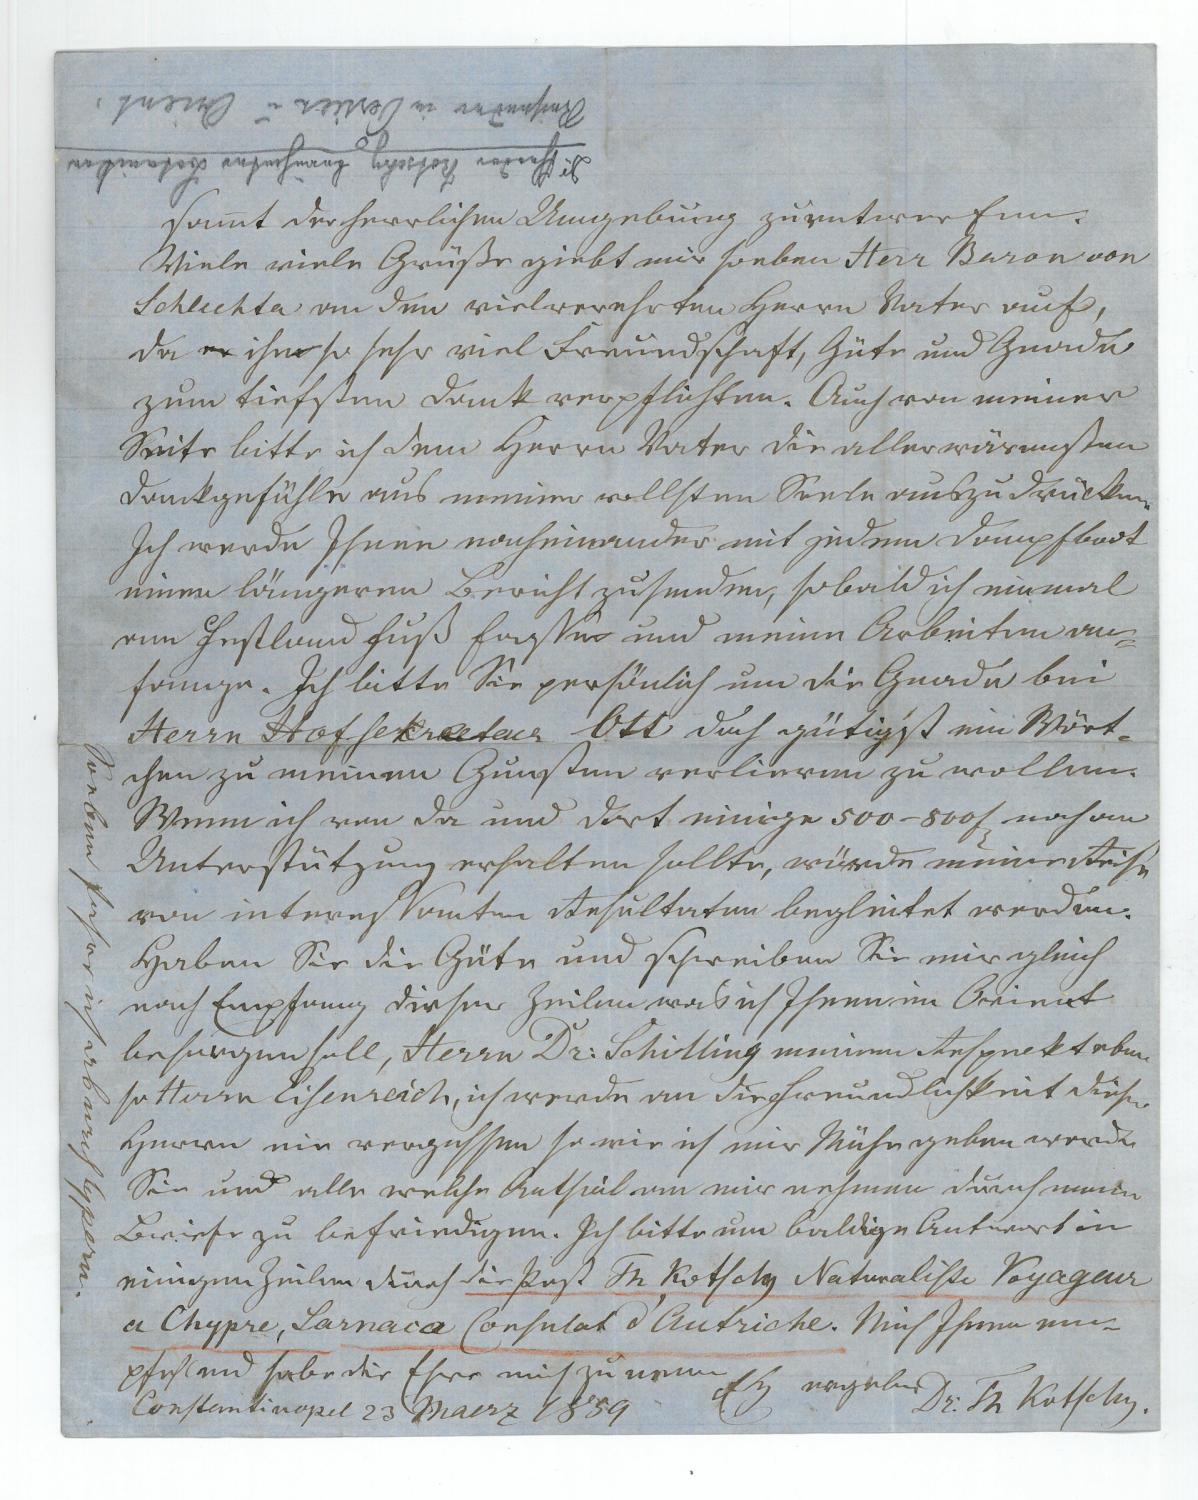 Dr Theodor Kotschy berühmter Botaniker
Reisender in Persien u Orient.
sam̅t der herrlichen Umgebung zu entwerfen.
Viele viele Grüße giebt mir soeben Herr Baron von
Schlechta an den vielverehrten Herrn Vater auf,
da er ihm so sehr viel Freundschaft, Güte und Gnade
zum tiefsten Dank verpflichten. Auch von meiner
Seite bitte ich dem Herrn Vater die allerwärmsten
Dankgefühle aus meiner vollsten Seele auszudrücken.
Ich werde Ihnen nacheinander mit jedem Dampfboot
einen längeren Bericht zusenden, sobald ich einmal
am Festland Fuß fasse und meine Arbeiten an=
fange. Ich bitte Sie persönlich um die Gnade bei
Herrn Hofsekretaer Ott doch gütigst ein Wört-
chen zu meinen Gunsten verlieren zu wollen.
Wenn ich von da und dort einige 500-800f noch an
Unterstützung erhalten sollte, würde meine Reise
von interessanten Resultaten begleitet werden.
Haben Sie die Güte und schreiben Sie mir gleich
nach Empfang dieser Zeilen was ich Ihnen im Orient
besorgen soll, Herrn Dr: Schilling meinen Respekt eben
so Herrn Eisenreich, ich werde an die Freundlichkeit dieser
Herrn nie vergessen so wie ich mir Mühe geben werde
Sie und alle welche Antheil an mir nehmen durch meine
Briefe zu befriedigen. Ich bitte um baldige Antwort in
einigen Zeilen durch die Post Th Kotschy Naturaliste Voyageur
a Chypre, Larnaca Consulat d'Autriche. Mich Ihnen em-
pfehlend habe die Ehre mich zu nennen
Constantinopel 23 Maerz 1859
ergebner Dr: Th Kotschy.
Soeben fahre ich ab nach Cypern.